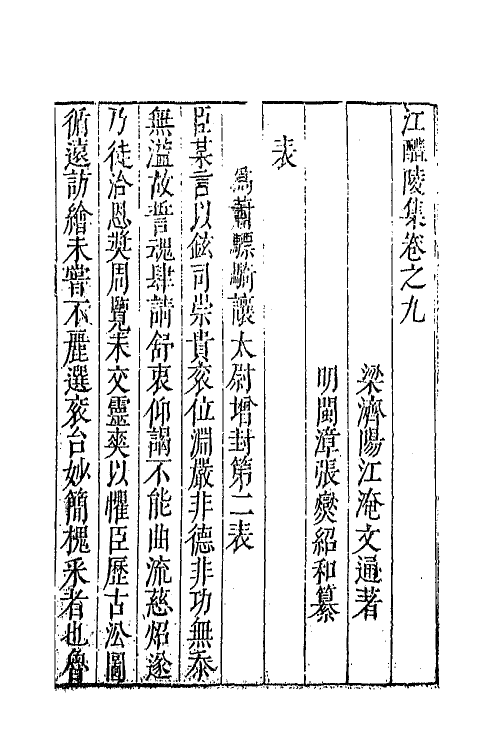 江醴陵集卷之九
梁濟陽江淹文通著
明閩漳張燮紹和纂
表
為蕭驃騎讓太尉增封第二表
臣某言以鉉司崇貴袞位淵嚴非德非功無忝
無濫故誓魂肆請舒衷仰謁不能曲流慈炤遂
乃徒洽恩奬周覽未交靈爽以懼臣歷古沿圖
循遠訪繪未嘗不麗選袞台妙簡槐釆者也魯